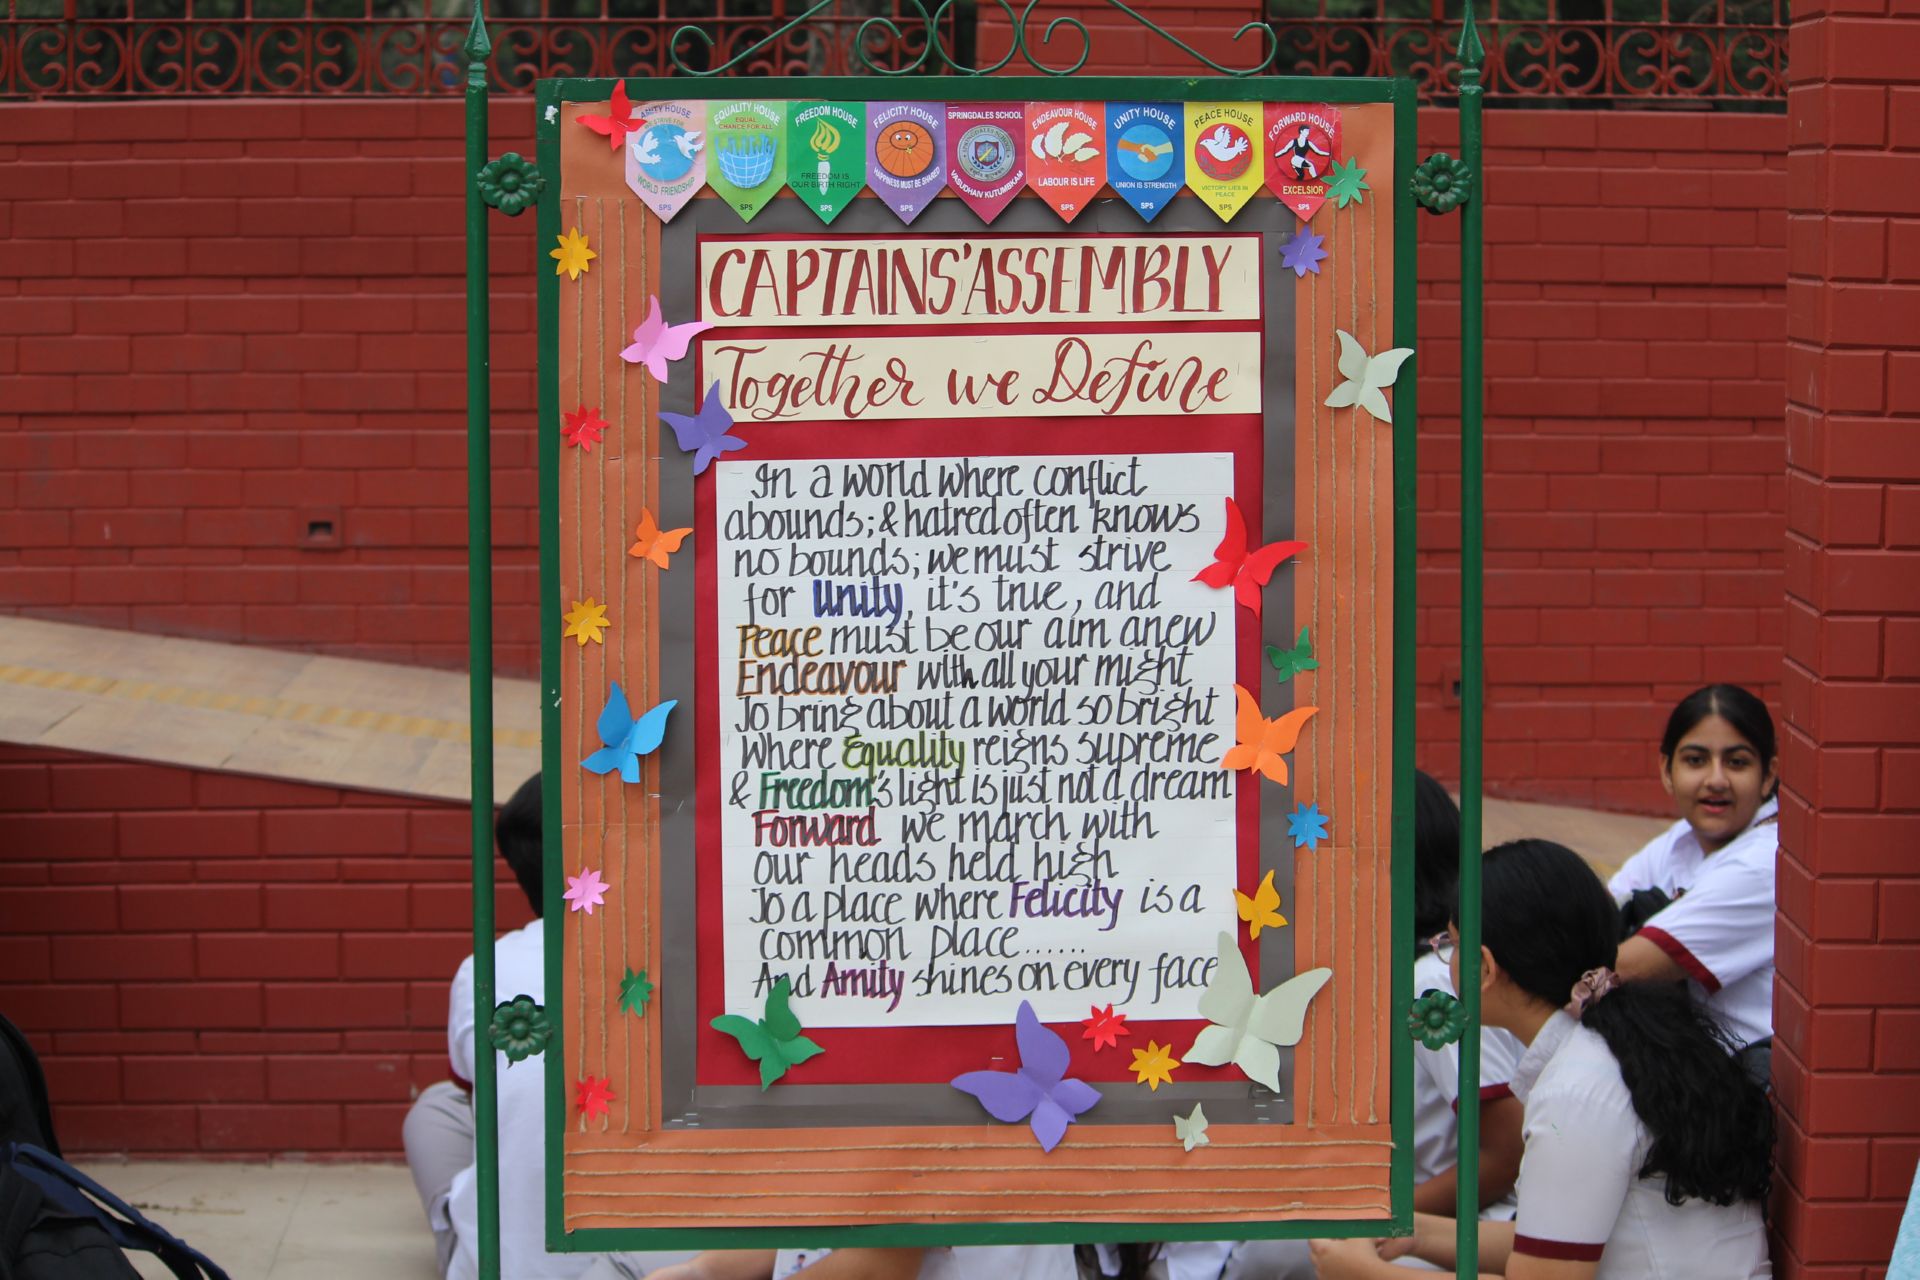 AMITY HOUSE
WE STRIVE FOR
WORLD FRIENDSHIP
SPS
EQUALITY HOUSE
EQUAL
CHANCE FOR ALL
SPS
FREEDOM HOUSE
FREEDOM IS
OUR BIRTH RIGHT
SPS
FELICITY HOUSE
HAPPINESS MUST BE SHARED
SPS
SPRINGDALES SCHOOL
VASUDHAIV KUTUMBKAM
ENDEAVOUR HOUSE
LABOUR IS LIFE
SPS
UNITY HOUSE
UNION IS STRENGTH
SPS
PEACE HOUSE
VICTORY LIES IN
PEACE
SPS
FORWARD HOUSE
EXCELSIOR
SPS
CAPTAINS' ASSEMBLY
Together we Define
In a world where conflict
abounds; & hatred often knows
no bounds; we must strive
for Unity, it's true, and
Peace must be our aim anew
Endeavour with all your might
To bring about a world so bright
Where Equality reigns supreme
& Freedom's light is just not a dream
Forward we march with
our heads held high
To a place where Felicity is a
common place......
And Amity shines on every face